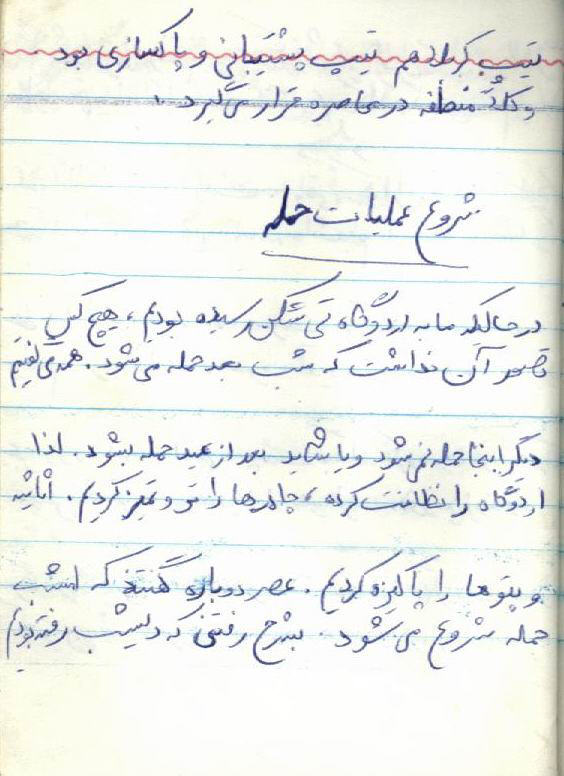 تیپ کربلا هم تیپ پشتیبانی و پاکسازی بود
و کلاً منطقه در محاصره قرار می‌گیرد.
شروع عملیات حمله
در حالیکه ما به اردوگاه تی شکن رسیده بودیم، هیچ کس
تصور آن نداشت که شب بعد حمله می‌شود. همه می‌گفتیم
دیگر اینجا حمله نمی‌شود و یا شاید بعد از عید حمله بشود. لذا
اردوگاه را نظافت کرده، چادرها را تر و تمیز کردیم. اثاثیه
و پتوها را پاکیزه کردیم. عصر دوباره گفتند که امشب
حمله شروع می‌شود. بشرح رفتنی که دیشب رفته بودیم